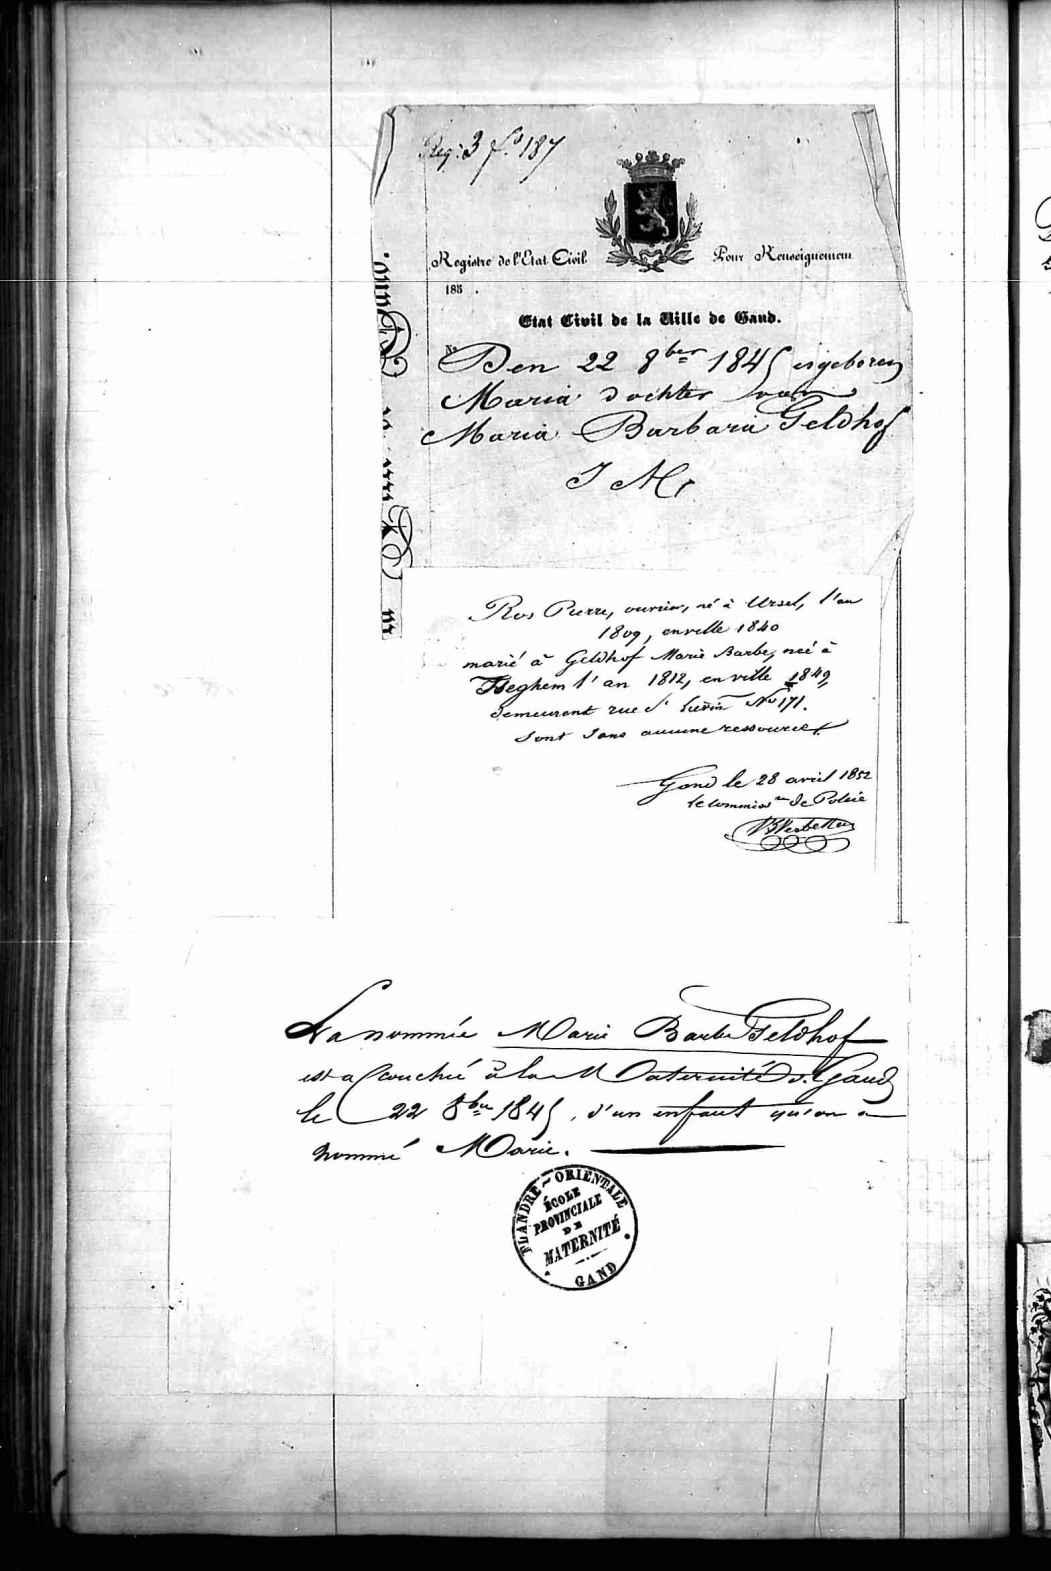 Reg: 3 f.o 187
Registre de l'Etat Civil.
Pour Renseignement
185 .
Etat Civil de la Ville de Gand.
No
Den 22 8ber 1845 is geboren
Maria dochter van
Maria Barbara Geldhof
Ros Pierre, ouvrier, né à Ursel, l'an
1809, en ville 1840
marié à Geldhof Marie Barbe, neé à
Iseghem l'an 1812, en ville 1849,
demeurant rue St Liévin No 171.
Sont sans aucune ressource.
Gand le 28 avril 1852
le commissre de Police
La nommée Marie Barbe Geldhof
est accouchée à la Maternité de Gand
le 22 8bre 1845, d'un enfant qu'on a
nommé Marie.
FLANDRE-ORIENTALE
ÉCOLE
PROVINCIALE
DE
MATERNITÉ
GAND